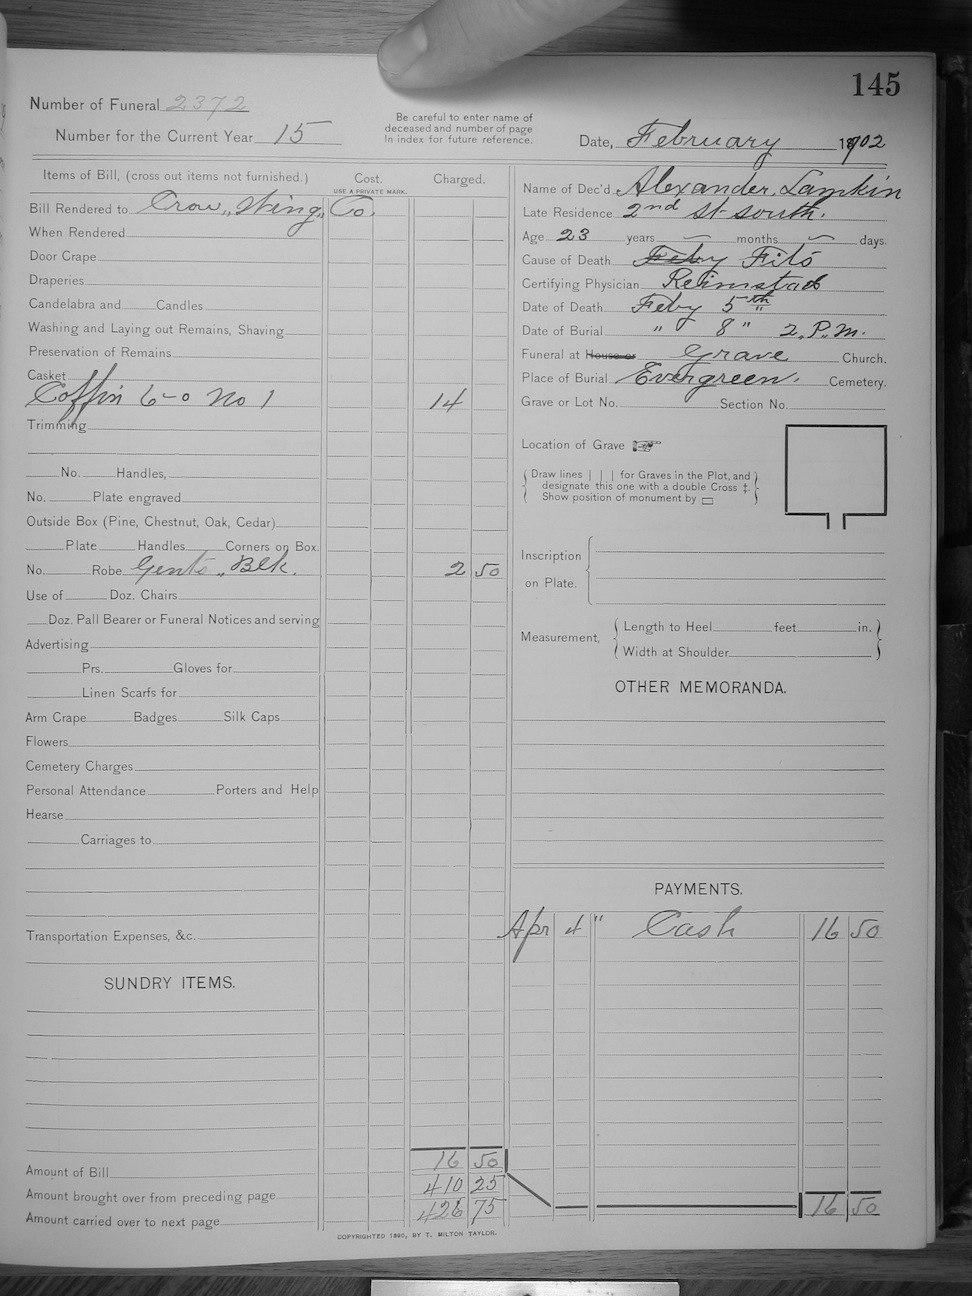 145
Number of Funeral 2372
Number for the Current Year 15
Be careful to enter name of
deceased and number of page
in index for future reference.
Date, February 1902
Items of Bill, (cross out items not furnished.) Cost. Charged.
USE A PRIVATE MARK.
Bill Rendered to Crow „ Wing „ Co.
When Rendered
Door Crape
Draperies
Candelabra and Candles
Washing and Laying out Remains, Shaving
Preservation of Remains
Casket
Coffin 6-0 No 1 14
Trimming
No. Handles,
No. Plate engraved
Outside Box (Pine, Chestnut, Oak, Cedar)
Plate Handles Corners on Box.
No. Robe Gents „ Blk. 2 50
Use of Doz. Chairs
Doz. Pall Bearer or Funeral Notices and serving
Advertising
Prs. Gloves for
Linen Scarfs for
Arm Crape Badges Silk Caps
Flowers
Cemetery Charges
Personal Attendance Porters and Help
Hearse
Carriages to
Transportation Expenses, &c.
SUNDRY ITEMS.
Amount of Bill 16 50
Amount brought over from preceding page 410 25
Amount carried over to next page 426 75
Name of Dec'd Alexander. Lamkin
Late Residence 2nd St-south.
Age 23 years – months – days.
Cause of Death Feby Fits
Certifying Physician Reimstad
Date of Death Feby 5th
Date of Burial " 8" 2.P.M.
Funeral at House or Grave Church.
Place of Burial Evergreen. Cemetery.
Grave or Lot No. Section No.
Location of Grave
Draw lines | | | for Graves in the Plot, and
designate this one with a double Cross ‡.
Show position of monument by □
Inscription
on Plate.
Measurement, Length to Heel feet in.
Width at Shoulder
OTHER MEMORANDA.
PAYMENTS.
Apr 4 " Cash 16 50
16 50
COPYRIGHTED 1890, BY T. MILTON TAYLOR.